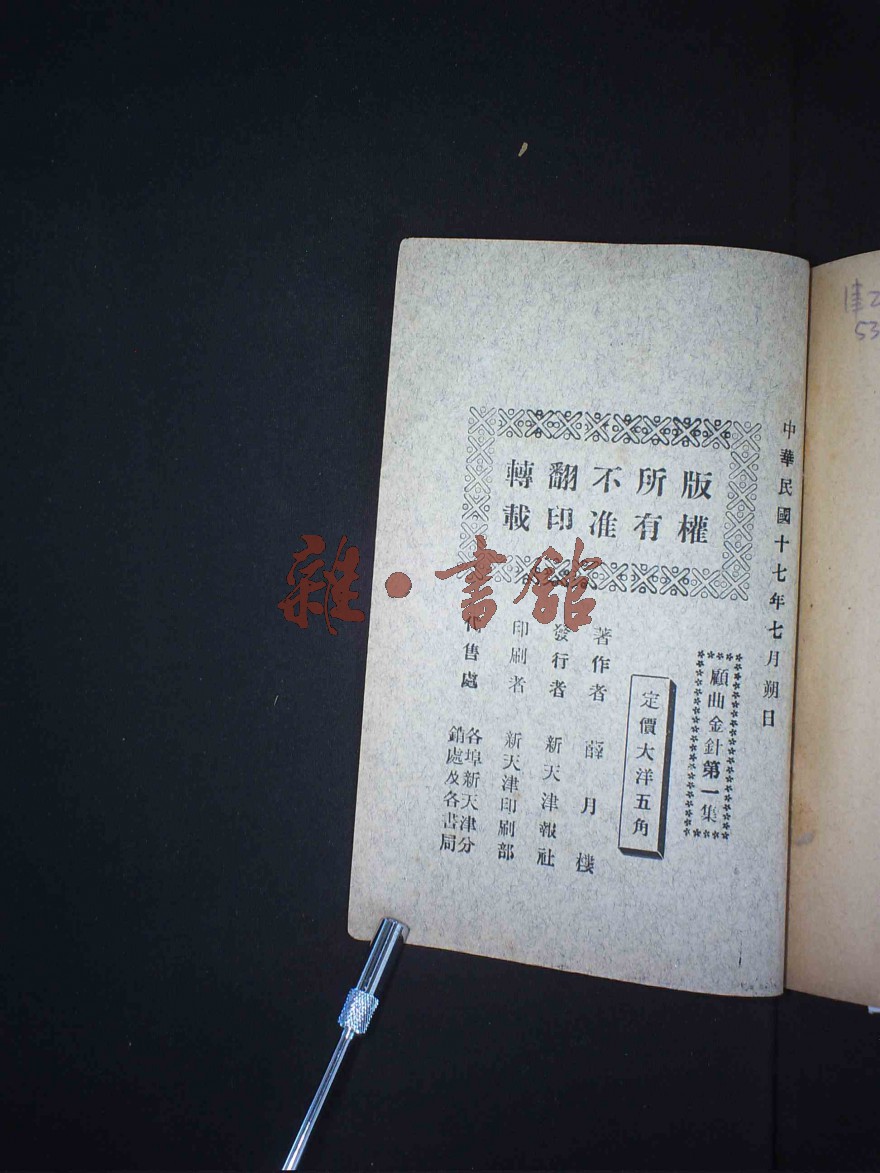 中華民國十七年七月朔日
版權所有不准翻印轉載
顧曲金針第一集
定價大洋五角
著作者 薛月樓
發行者 新天津報社
印刷者 新天津印刷部
代售處 各埠新天津分銷處及各書局
雜·書館
53